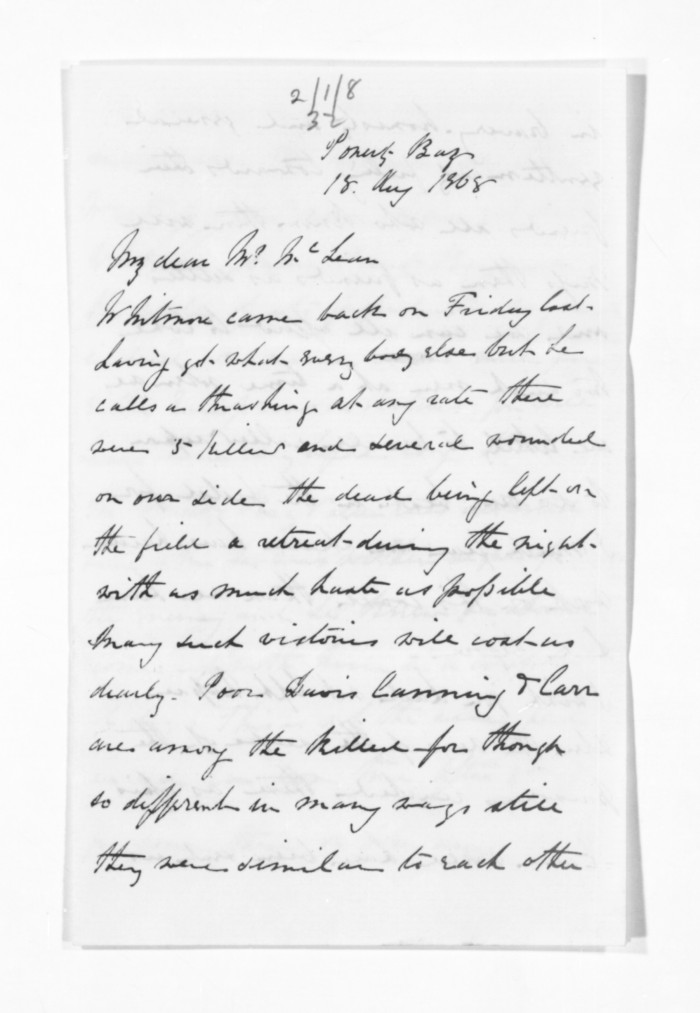 2/1/8
32
Poverty Bay
18. Aug 1868.
My dear Mr. McLean
Whitmore came back on Friday last-
having got what every body else but he
calls a thrashing, at any rate there
were 5 killed and several wounded
on our side the dead being left on
the field a retreat during the night-
with as much haste as possible
Many such victories will cost us
dearly. Poor Davis Canning & Carr
are among the killed for though
so different in many ways still
they were similar to each other